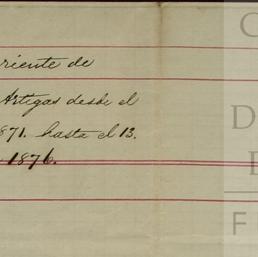 rriente de
Artigas desde el
871. hasta el 13.
1876.
C
D
F